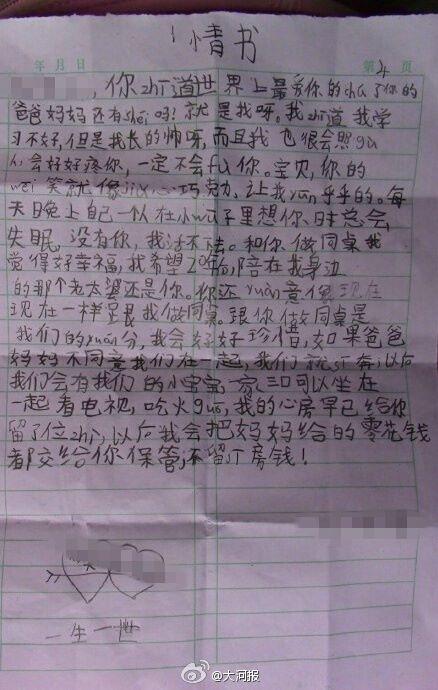 情书
年 月 日 第4页
，你zhī道世界上最爱你的chú了你的
爸爸妈妈还有sheí吗？就是我呀。我zhī道我学
习不好，但是我长的帅呀，而且我也很会照gù
会好好疼你，一定不会fù你。宝贝，你的
wēi笑就像jiǔ心巧克力，让我yūn乎乎的。每
天晚上自己一人在小wū子里想你，时总会
失眠，没有你，我活不去。和你做同桌我
觉得好幸福，我希望20年后，陪在我身边
的那个老太婆还是你。你还yuàn意像现在
现在一样足艮我做同桌。跟你做同桌是
我们的yuán分，我会好好珍惜，如果爸爸
妈妈不同意我们在一起，我们就
我们会有我们的小宝宝，一家三口可以坐在
一起看电视，吃火guō，我的心房早已给你
留了位zhì，以后我会把妈妈给的零花钱
都交给你保管，不留丁房钱！
一生一世
@大河报